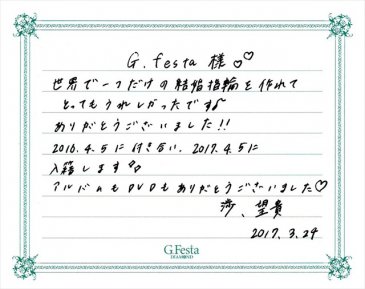 G.festa 様♡♡
世界で一つだけの結婚指輪を作れて
とってもうれしかったです♪
ありがとうございました!!
2016.4.5に付き合い、2017.4.5に
入籍します♡♡
アルバムもDVDもありがとうございました♡
莎、望貴
2017.3.29
G.Festa
DIAMOND